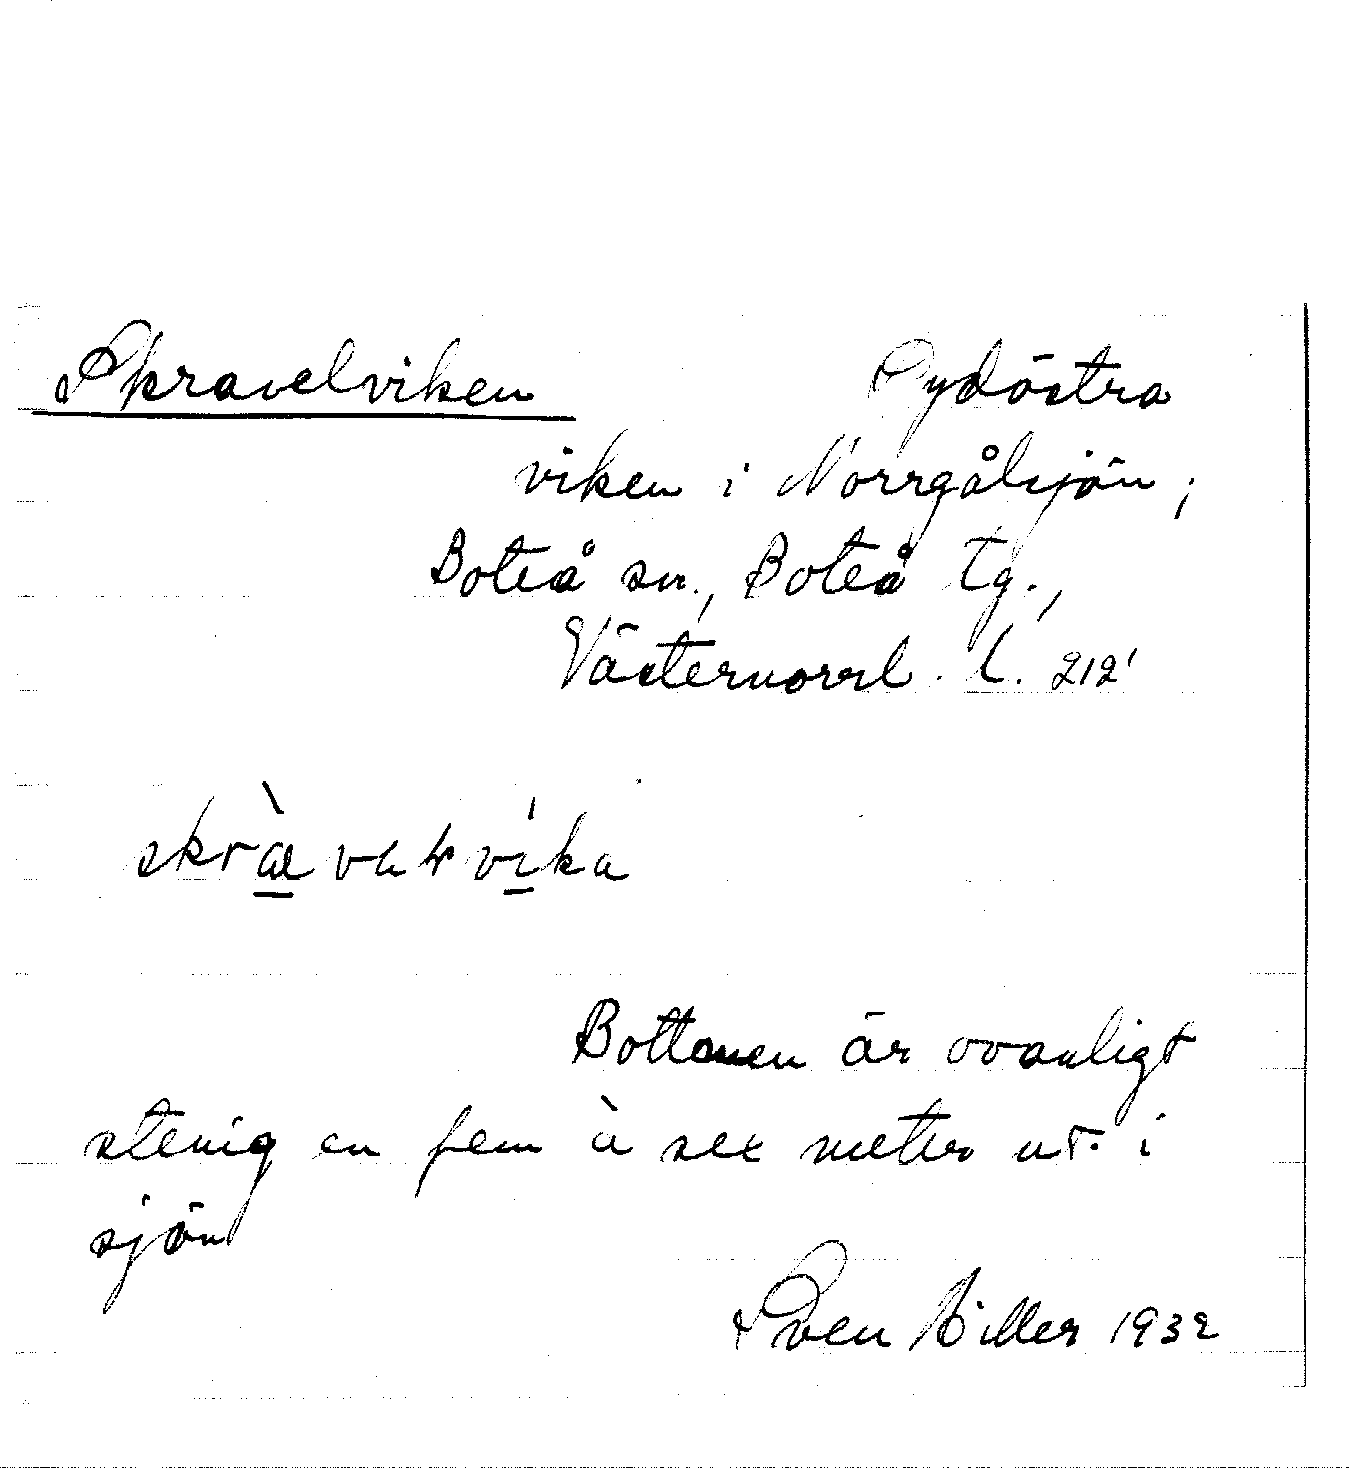 Skravelviken Sydöstra
viken i Norrgålsjön,
Boteå sn., Boteå tg.,
Västernorrl. l. 212'
Bottenen är ovanligt
stenig en fem à sex meter ut i
sjön
Sven Hiller 1932